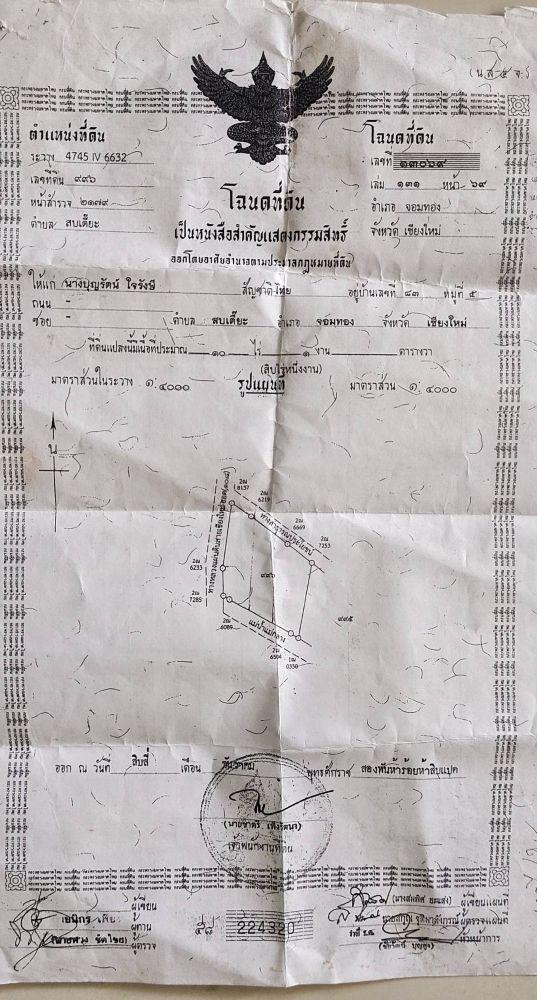 (น.ส.๔ จ.)
ตำแหน่งที่ดิน
ระวาง 4745 IV 6632
เลขที่ดิน ๙๙๖
หน้าสำรวจ ๒๑๗๙
ตำบล สบเตี๊ยะ
โฉนดที่ดิน
เลขที่ ๑๓๐๖๙
เล่ม ๑๓๑ หน้า ๖๙
อำเภอ จอมทอง
จังหวัด เชียงใหม่
โฉนดที่ดิน
เป็นหนังสือสำคัญแสดงกรรมสิทธิ์
ออกโดยอาศัยอำนาจตามประมวลกฎหมายที่ดิน
ให้แก่ นางบุญรัตน์ ใจรังษี สัญชาติ ไทย อยู่บ้านเลขที่ ๘๓ หมู่ที่ ๕
ถนน -
ซอย - ตำบล สบเตี๊ยะ อำเภอ จอมทอง จังหวัด เชียงใหม่
ที่ดินแปลงนี้มีเนื้อที่ประมาณ ๑๐ ไร่ ๑ งาน ตารางวา
(สิบไร่หนึ่งงาน)
มาตราส่วนในระวาง ๑:๔๐๐๐ รูปแผนที่ มาตราส่วน ๑:๔๐๐๐
น
2ณ 8137
2ณ 6219
2ณ 6669
2ณ 7253
ทางสาธารณประโยชน์
2ณ 6233
2ณ 7285
๙๙๖
๙๙๕
แม่น้ำแม่กลาง
2ณ 6089
2ณ 6504
1ณ 0350
ออก ณ วันที่ สิบสี่ เดือน ธันวาคม พุทธศักราช สองพันห้าร้อยห้าสิบแปด
เจ้าพนักงานที่ดิน
ผู้เขียน
ผู้ทาน
ผู้ตรวจ
๕๘ 224320
ผู้เขียนแผนที่
ผู้ตรวจแผนที่
หัวหน้าการ